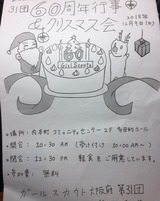 31団 60周年行事
&クリスマス会
2018年
12月9日(日)
Girl Scouts
・場所: 内本町コミュニティセンター 2F 多目的ホール
・開会: 10:30 AM (受け付け 10:00 AM~)
・閉会: 12:30 PM 軽食をご用意しています。
・参加費: 無料
ガールスカウト大阪府 第31団